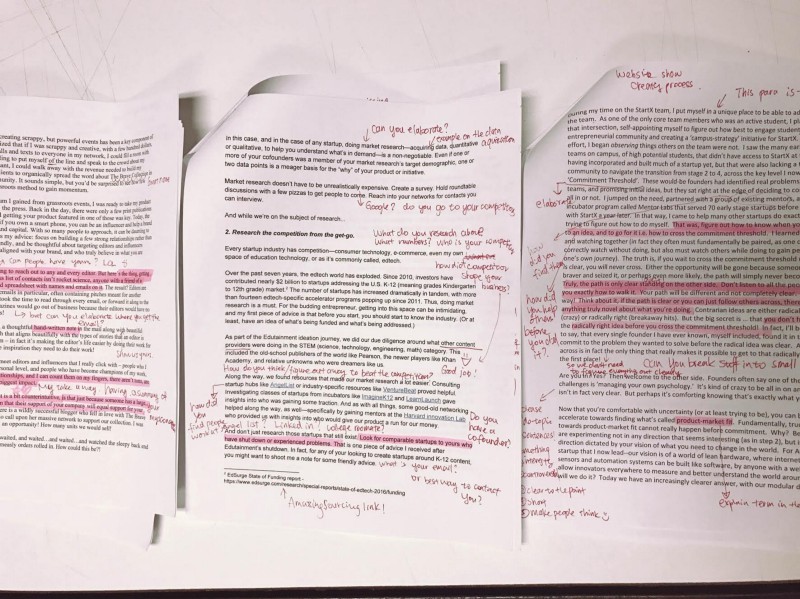 creating scrappy, but powerful events has been a key component of
ized that if I was scrappy and creative, with a few hundred dollars,
lls and texts to everyone in my network, I could fill a room with
ling to put myself of the line and speak to the crowd about my
ant, I could walk away with the revenue needed to build my
tients to organically spread the word about The
unity. It sounds simple, but you'd be surprised to
ssroots method to gain momentum.
am I gained from grassroots events, I was ready to take my product
the press. Back in the day, there were only a few print publications
f getting your product featured in one of those was
if you own a smart phone, you can be an influencer and help a brand
and capital. With so many people to approach, it can be daunting to
my advice: focus on building a few strong relationships rather than
lly, and be thoughtful about targeting editors and
aligned with your brand, and who truly believe in what you are
ng to reach out to any and every editor. But here is the thing, getting
a list of contacts isn't rocket science, anyone with a friend of a
d spreadsheet with names and emails on it. The result? Editors are
emails in particular, often containing pitches meant for another
took the time to read through every email, or forward it along to the
zines would go out of business because their editors would have to
but can you elaborate
email?
a thoughtful hand-written note in the mail along with beautiful
that aligns beautifully with the types of stories that an editor is
– in fact it's making the editor's life easier by doing their work for
inspiration do they need to do their work!
meet editors and influencers that I really click with – people who I
onal level, and people who have become champions of my work,
tionships, and I can count them on my fingers, that aren't
biggest impact.
is a bit counterintuitive, is that just because someone
n that their support of your company will equal support for
re is a wildly successful blogger who fell in love with The
e call to support her massive network to support our collection. I was
an opportunity! How many units would we sell?
waited, and waited…and waited, and watched the sleepy back end
neously orders rolled in. How could this be?!
Can you elaborate?
example on the data
acquisition
in this case, and in the case of any startup, doing market research—acquiring data, quantitative
or qualitative, to help you understand what's in demand—is a non-negotiable. Even if one or
more of your cofounders was a member of your market research's target demographic, one or
two data points is a meager basis for the "why" of your product or initiative.
Market research doesn't have to be unrealistically expensive. Create a survey. Hold roundtable
discussions with a few pizzas to get people to come. Reach into your networks for contacts you
can interview.
Google? do you go to your competitors
And while we're on the subject of research…
What do you research about
What numbers? Who is your
2. Research the competition from the get-go.
Every startup industry has competition—consumer technology, e-commerce, even my own
space of education technology, or as it's commonly called, edtech.
how did competition
shape your
business?
Over the past seven years, the edtech world has exploded. Since 2010, investors have
contributed nearly $2 billion to startups addressing the U.S. K-12 (meaning grades Kindergarten
to 12th grade) market.¹ The number of startups has increased dramatically in tandem, with more
than fourteen edtech-specific accelerator programs popping up since 2011. Thus, doing market
research is a must. For the budding entrepreneur, getting into this space can be intimidating,
and my first piece of advice is that before you start, you should know the industry. (Or at
least, have an idea of what's being funded and what's being addressed.)
As part of the Edutainment ideation journey, we did our due diligence around what other content
providers were doing in the STEM (science, technology, engineering, math) category. This
included the old-school publishers of the world like Pearson, the newer players like Khan
Academy, and relative unknowns who were dreamers like us.
Good job!
How do you think/figure out a way to beat the competition?
Along the way, we found resources that made our market research a lot easier. Consulting
startup hubs like AngelList or industry-specific resources like VentureBeat proved helpful.
Investigating classes of startups from incubators like ImagineK12 and LearnLaunch gave
insights into who was gaining some traction. And as with all things, some good-old networking
helped along the way, as well—specifically by gaining mentors at the Harvard Innovation Lab
who provided us with insights into who would give our product a run for our money.
how did
you
find people
Angel list? Linked in? college
Do you
have a
cofounder?
And don't just research those startups that still exist. Look for comparable startups to yours who
have shut down or experienced problems. That is one piece of advice I received after
Edutainment's shutdown. In fact, for any of your looking to create startups around K-12 content,
you might want to shoot me a note for some friendly advice.
what's your email?
or best way to contact
you?
¹ EdSurge State of Funding report -
https://www.edsurge.com/research/special-report/state-of-edtech-2016/funding
Amazing sourcing link!
Website show
process
This para is
During my time on the StartX team, I put myself in a unique place to be able to ad
the team. As one of the only core team members who was an active student, I pla
that intersection, self-appointing myself to figure out how best to engage student
entrepreneurial community and creating a 'campus-strategy' initiative for StartX.
effort, I began observing things others on the team were not. I saw the many ear
teams on campus, of high potential students, that didn't have access to StartX at t
having incorporated and built much of a startup yet, but that were also lacking a
community to navigate the transition from stage 2 to 4, across the key level I now
'Commitment Threshold'. These would be founders had identified real problems
teams, and promising initial ideas, but they sat right at the edge of deciding to co
all in or not. I jumped on the need, partnered with a group of existing mentors, a
incubator program called Mentor Labs that served 70 early stage startups before
with StartX a year later. In that way, I came to help many other startups do exact
trying to figure out how to do myself. That was, figure out how to know when yo
to an idea, and to go for it i.e. how to cross the commitment threshold. I learned
and watching together (in fact they often must fundamentally be paired, as one
correctly watch without doing, but also must watch others while doing to gain pe
one's own journey). The truth is, if you wait to cross the commitment threshold u
is clear, you will never cross. Either the opportunity will be gone because someon
braver and seized it, or perhaps even more likely, the path will simply never
Truly, the path is only clear standing on the other side. Don't listen to all the peop
you exactly how to walk it. Your path will be different and not completely clear
way! Think about it, if the path is clear or you can just follow others across, there
anything truly novel about what you're doing. Contrarian ideas are either radical
(crazy) or radically right (breakaway hits). But the big secret is … that you don't h
the radically right idea before you cross the commitment threshold! In fact, I'll b
to say, that every single founder I have ever known, myself included, found it in
commit to the problem they wanted to solve before the radical idea was clear. A
across is in fact the only thing that really makes it possible to get to that radicall
the first place!
Can you break stuff into small
Are you in? Yes! Then welcome to the other side. Founders often say one of the
challenges is 'managing your own psychology.' It's kind of crazy to be all in on an
isn't in fact very clear. But perhaps it's comforting knowing that's exactly what y
elaborate
how did
you help
others
before
you
Now that you're comfortable with uncertainty (or at least trying to be), you can b
accelerate towards finding what's called product-market fit. Fundamentally, trac
towards product-market fit cannot really happen before commitment. Why? Bec
are experimenting not in any direction that seems interesting (as in step 2), but i
direction dictated by your vision of what you need to change in the world. For A
startup that I now lead—our vision is of a world of lean hardware, where intern
sensors and automation systems can be built like software, by anyone with a we
allow innovators everywhere to measure and better understand the world aroun
will we do it? Today we have an increasingly clearer answer, with our modular d
please
do topic
sentences
something
interesting
controversial
① clear to the point
② short
③ make people think
explain term in the